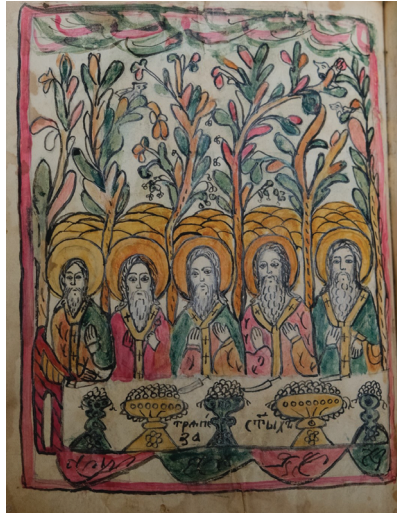 трапе
за
ст҃ыхъ